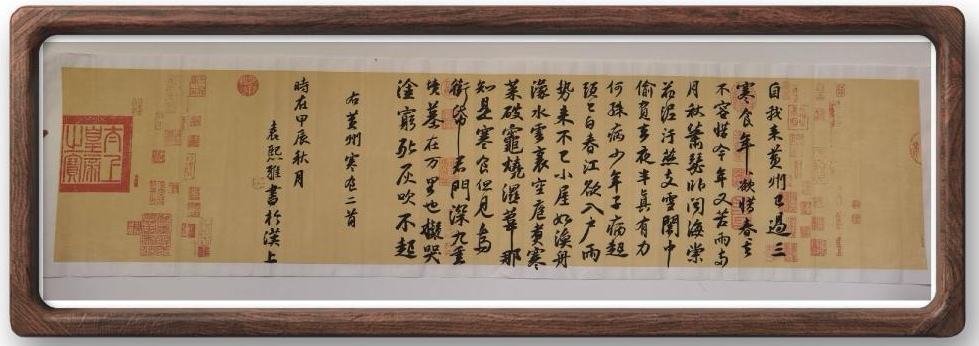 自我来黄州已過三
寒食年〻欲惜春去
不容惜今年又苦雨兩
月秋蕭瑟卧聞海棠
花泥汙燕支雪闇中
偷負去夜半真有力
何殊病少年子病起
頭已白春江欲入户雨
勢来不已小屋如漁舟
濛水雲裏空庖煮寒
菜破竈燒濕葦那
知是寒食但見烏
銜帋君門深九重
墳墓在万里也擬哭
塗窮死灰吹不起
右黄州寒食二首
時在甲辰秋月
袁熙雅書於漢上
太上
皇帝
之寶